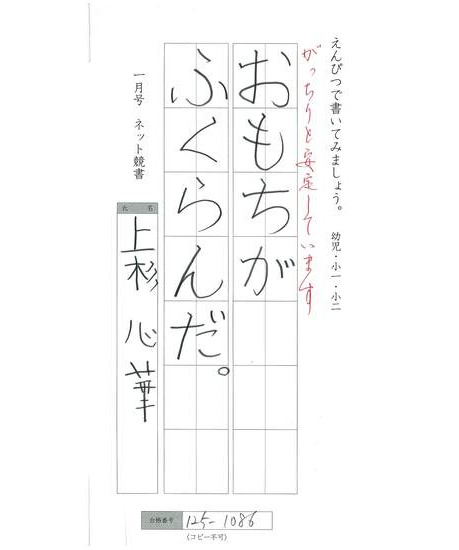 えんぴつで書いてみましょう。 幼児・小一・小二
がっちりと安定しています
おもちが
ふくらんだ。
一月号 ネット競書
氏名
上杉 心華
合格番号 125-1086
(コピー不可)